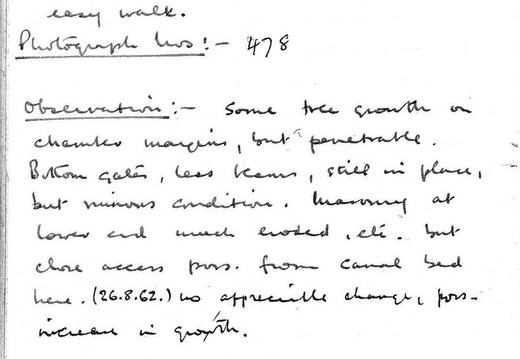 easy walk.
Photograph Nos:- 478
Observation:- Some tree growth on
chamber margins, but penetrable.
Bottom gates, less beams, still in place,
but ruinous condition. Masonry at
lower end much eroded, etc. but
close access poss. from canal bed
here. (26.8.62.) no appreciable change, poss.
increase in growth.